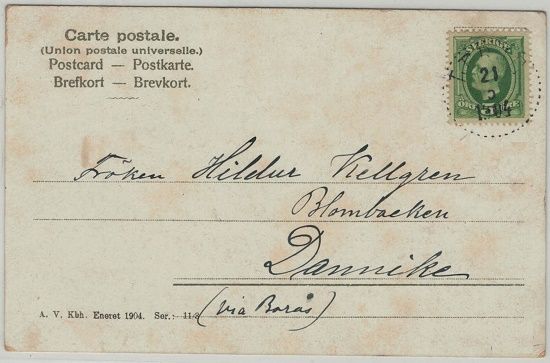 Carte postale.
(Union postale universelle.)
Postcard — Postkarte.
Brefkort — Brevkort.
21
1904
Fröken Hildur Kellgren
Blombacken
Dannike
(via Borås)
A. V. Kbh. Eneret 1904. Ser.: 11/3